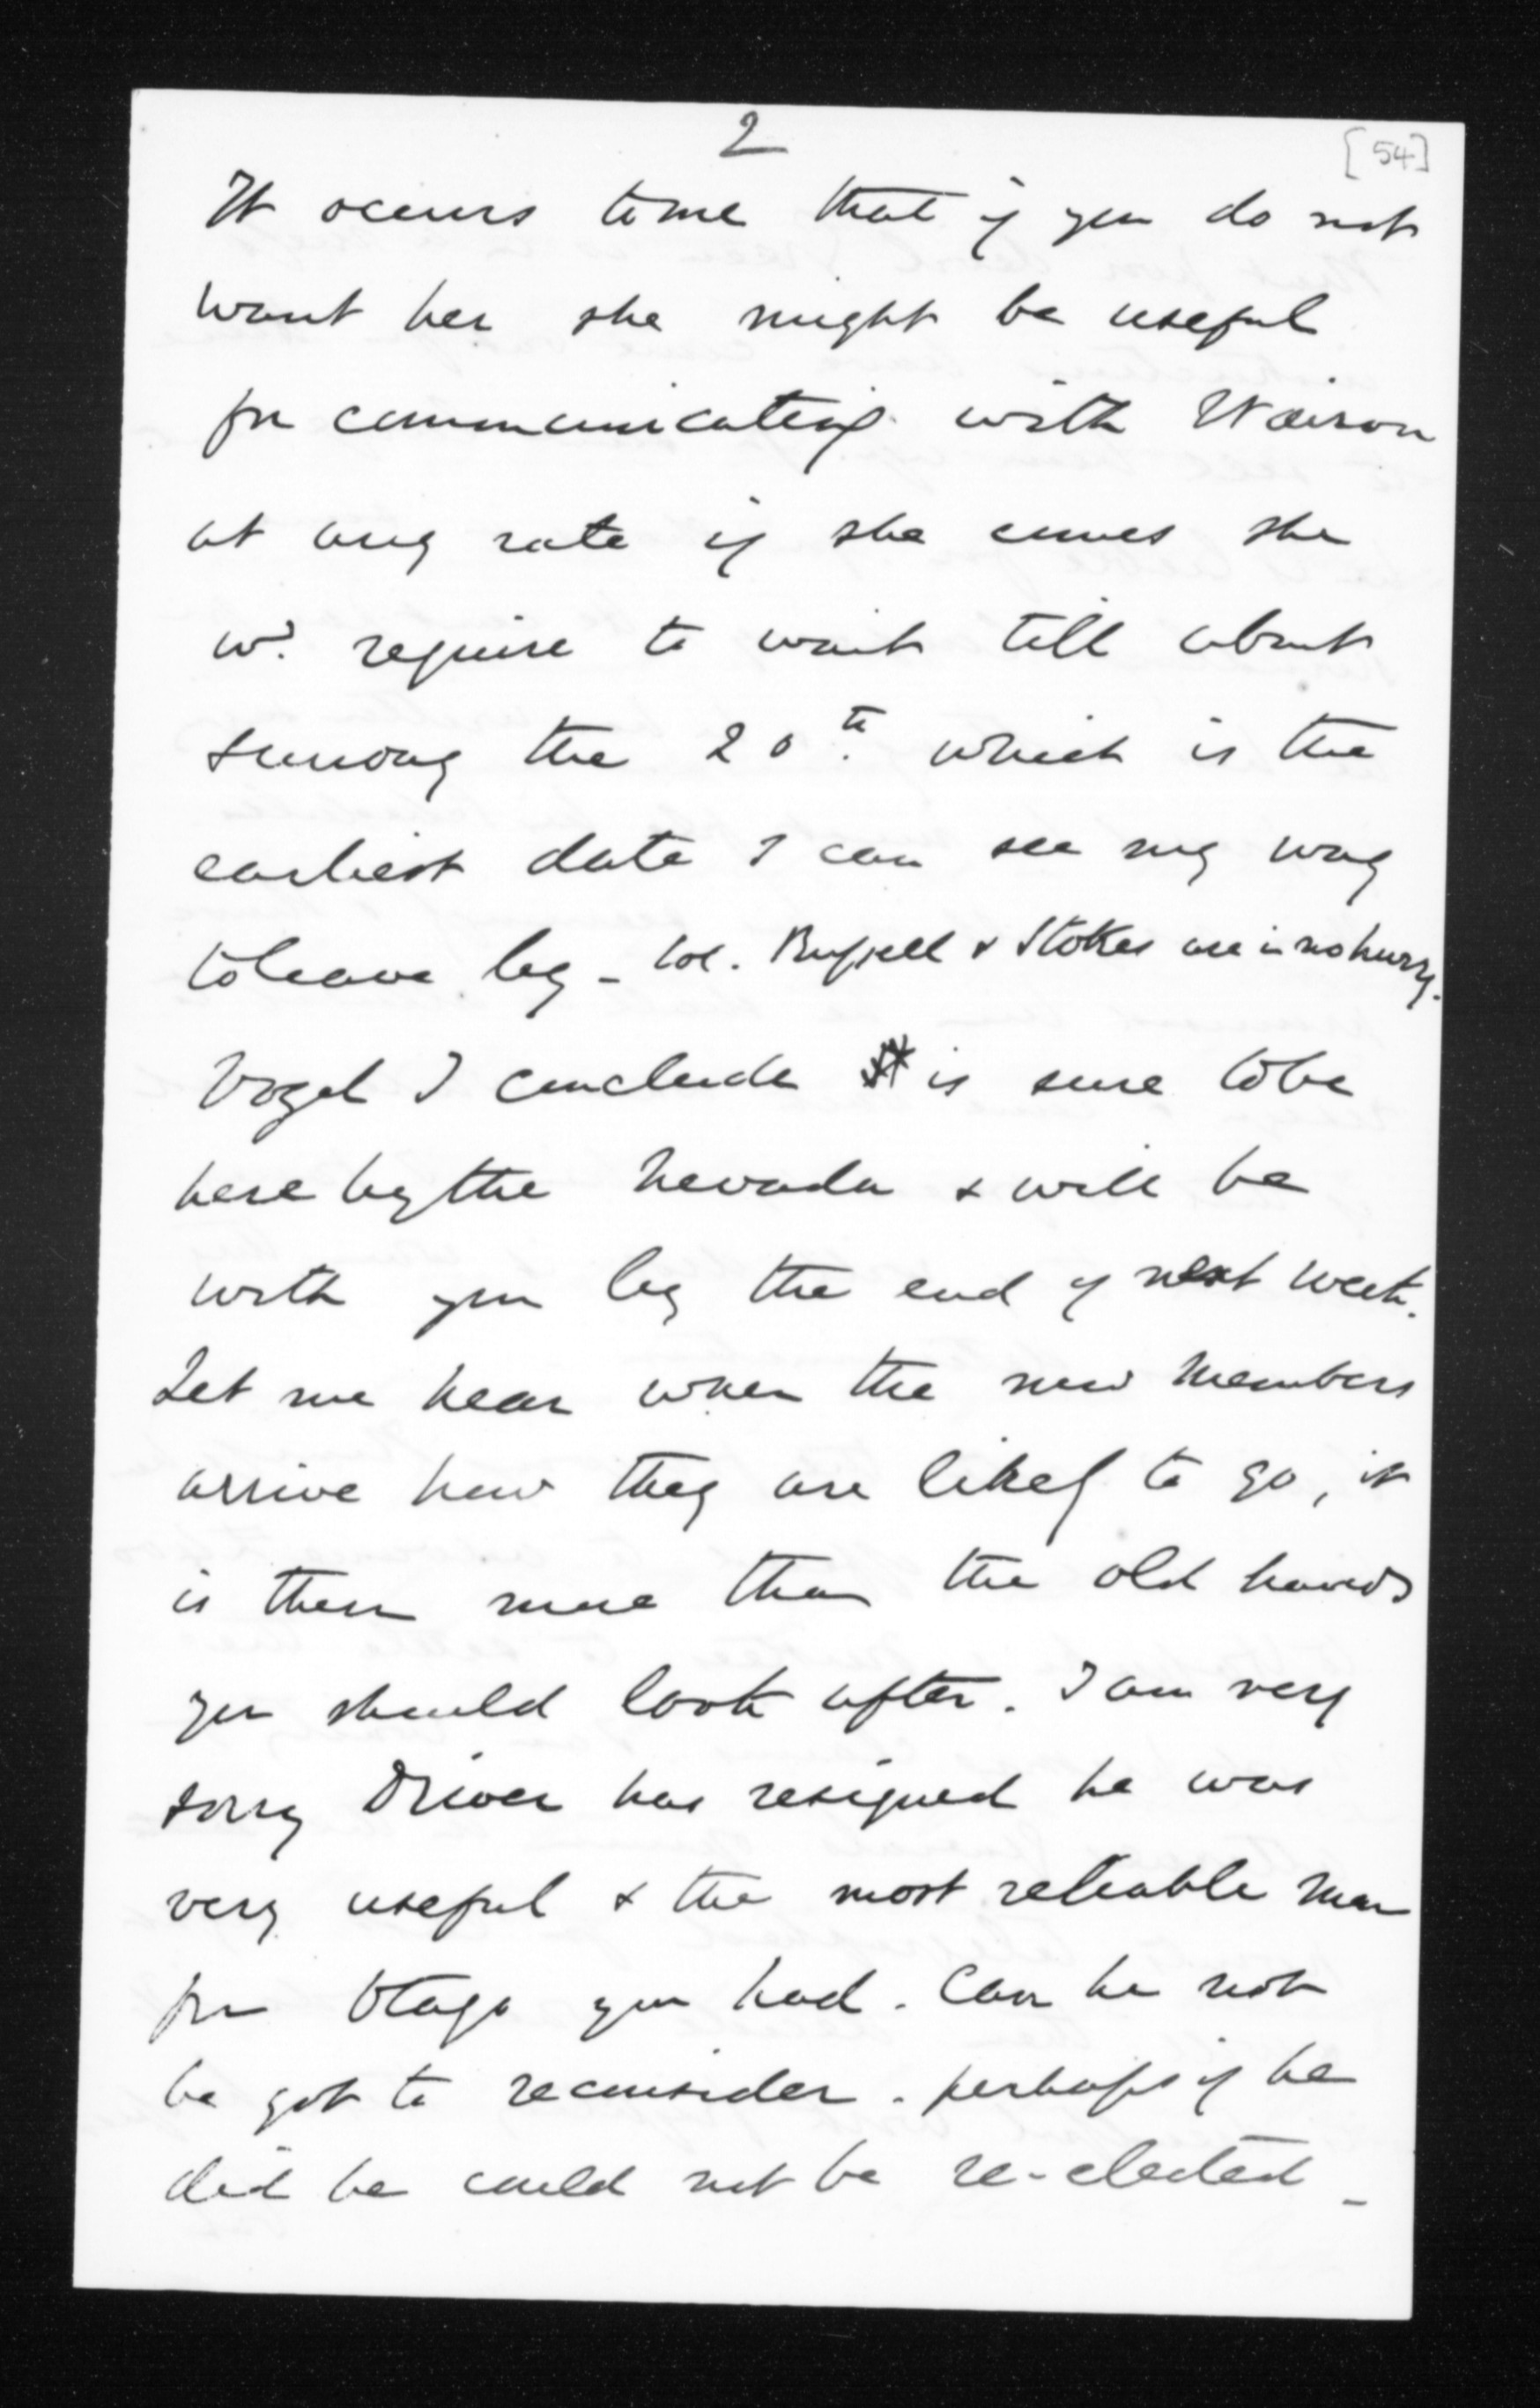 2
[54]
It occurs to me that if you do not
want her she might be useful
for communicating with Wairoa
at any rate if she comes she
wd. require to wait till about
Sunday the 20th. which is the
earliest date I can see my way
to leave by - Col. Russell & Stokes are in no hurry.
Vogel I conclude is sure to be
here by the Nevada & will be
with you by the end of next week.
Let me hear when the new members
arrive how they are likely to go, it
is them more than the old hands
you should look after. I am very
sorry Driver has resigned he was
very useful & the most reliable man
for Otago you had. Can he not
be got to reconsider. perhaps if he
did he could not be re-elected -